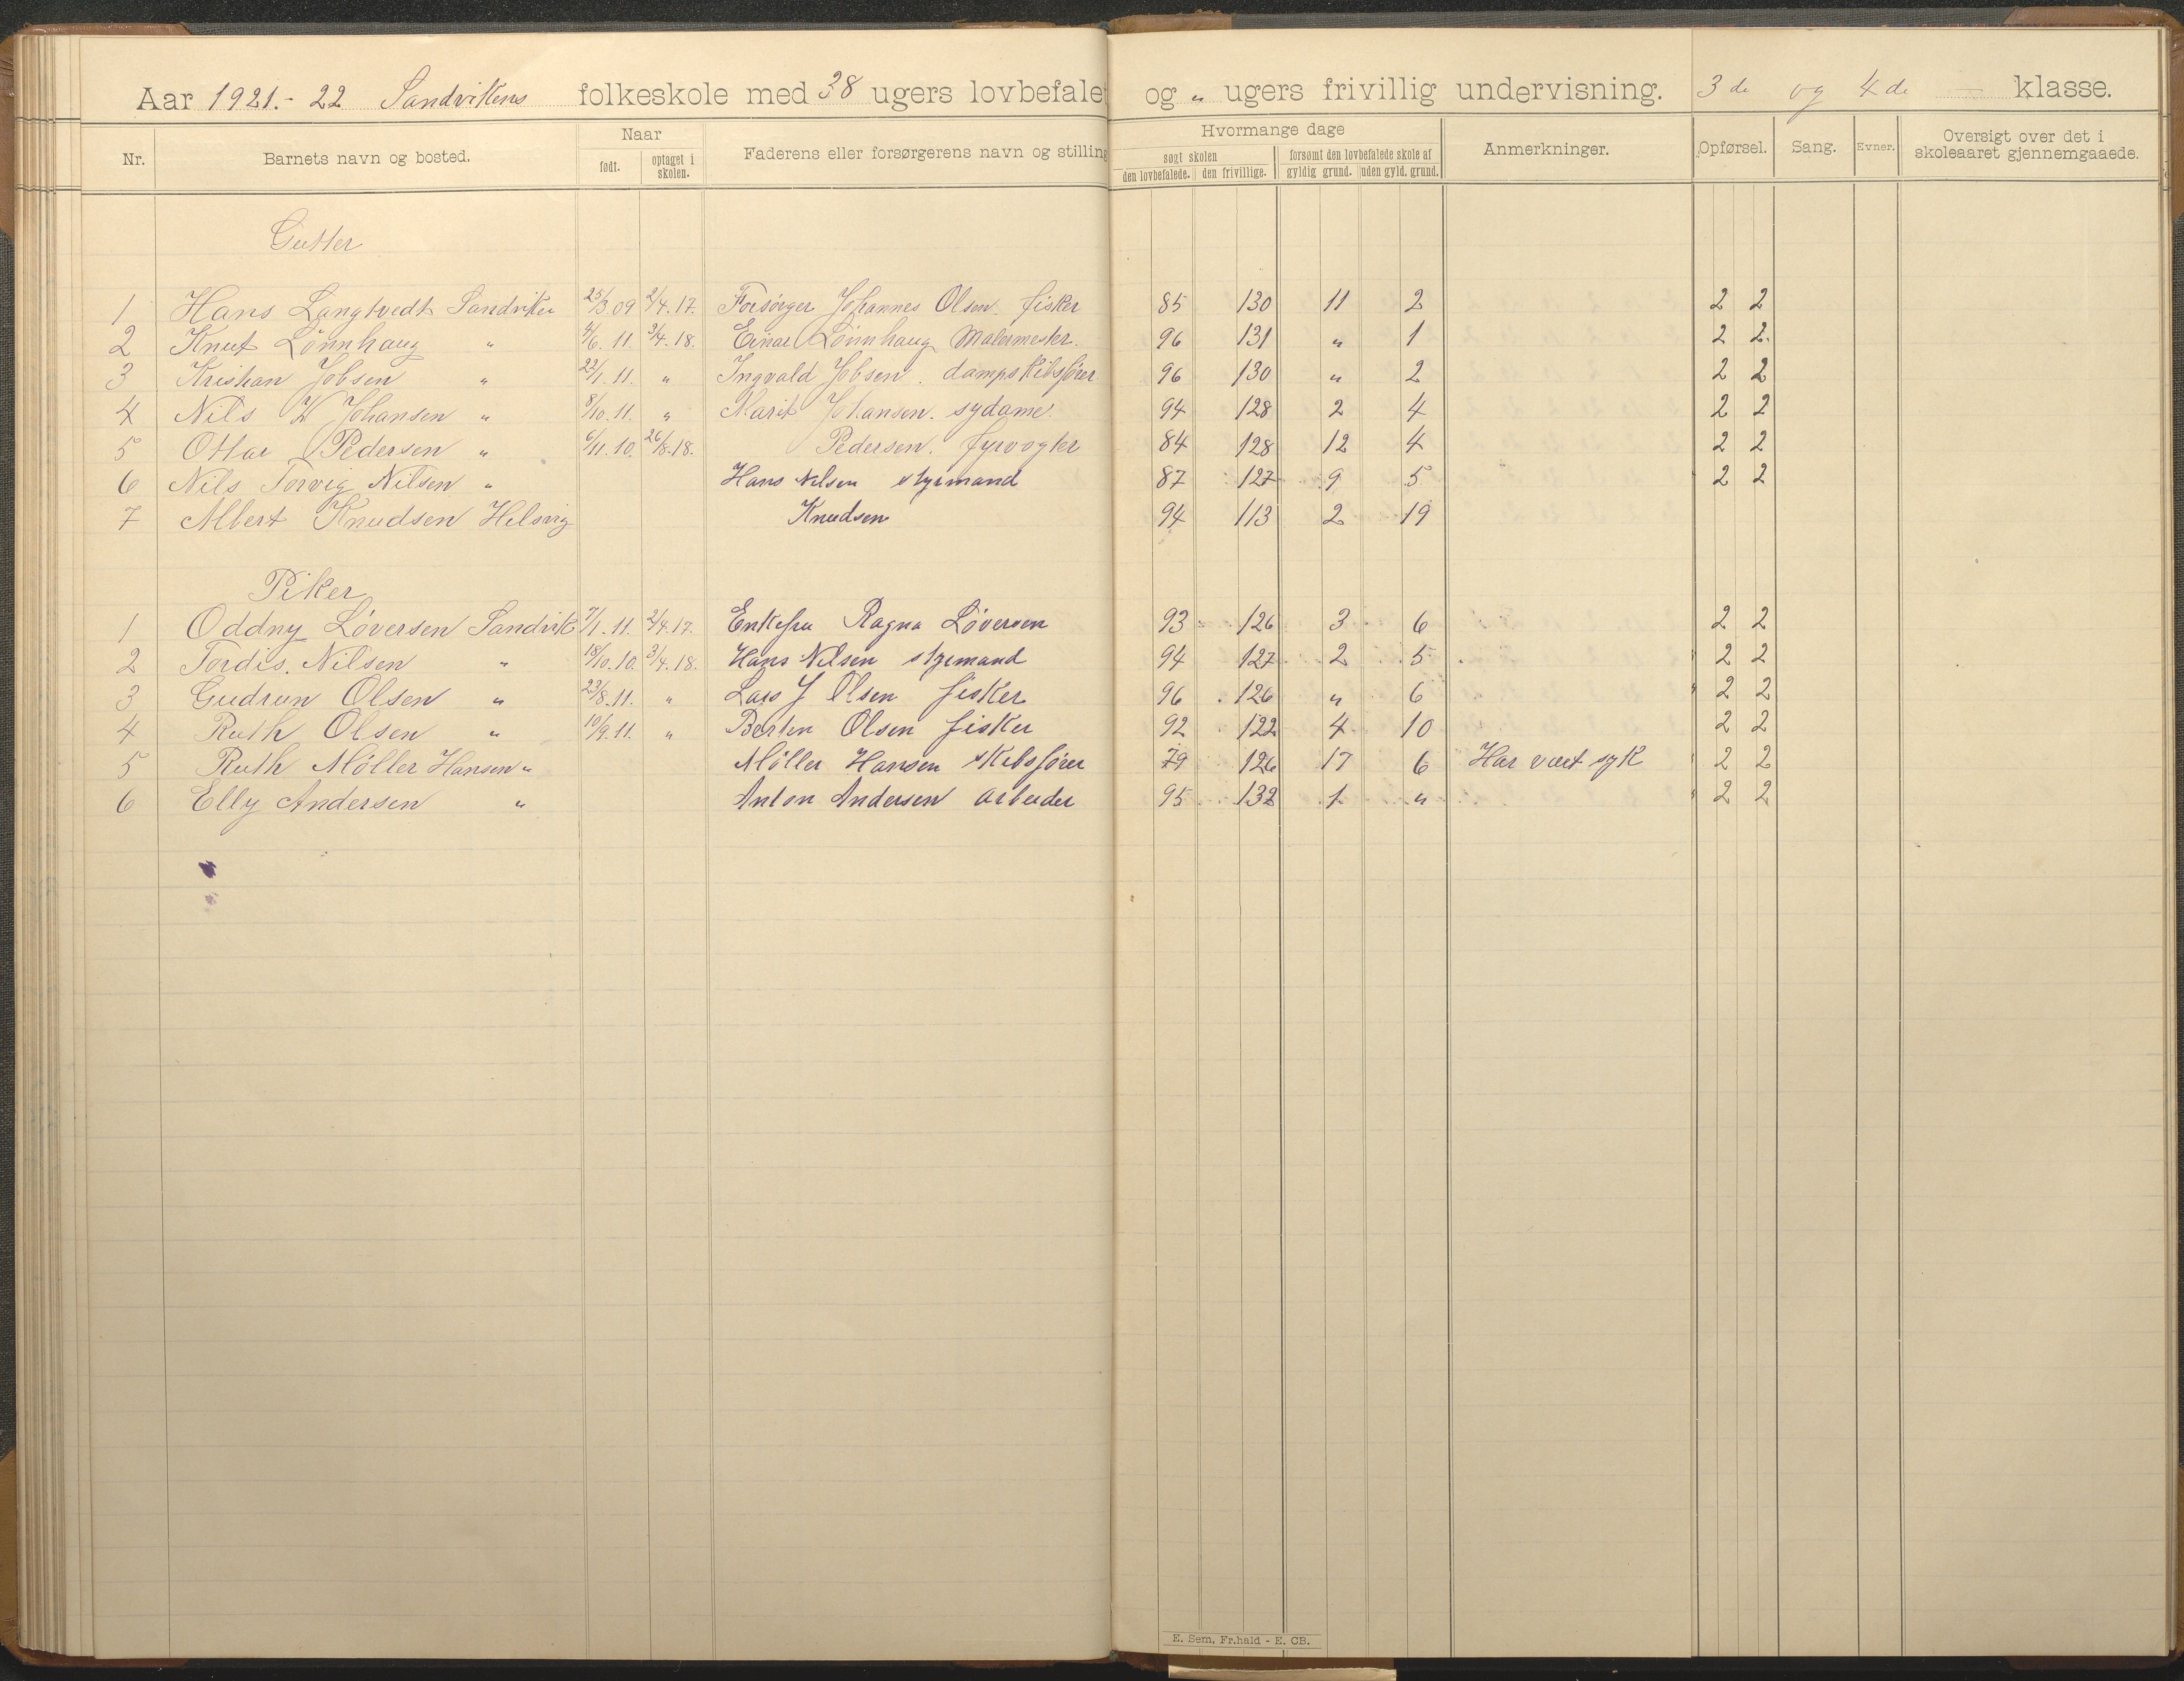 Aar 1921.- 22 Sandvikens folkeskole med 38 ugers lovbefalet og " ugers frivillig undervisning. 3de og 4de — klasse.
Nr. Barnets navn og bosted. Naar født. optaget i skolen. Faderens eller forsørgerens navn og stilling Hvormange dage søgt skolen den lovbefalede. den frivillige. forsømt den lovbefalede skole af gyldig grund. uden gyld. grund. Anmerkninger. Opførsel. Sang. Evner. Oversigt over det i skoleaaret gjennemgaaede.
Gutter
1 Hans Langtvedt Sandviken 25/3.09 2/4.17. Forsörger Johannes Olsen. fisker 85 130 11 2 2 2
2 Knut Lönnhaug " 4/6.11. 3/4.18. Einar Lönnhaug Malermester. 96 131 " 1 2 2.
3 Kristian Jobsen " 22/1.11. " Ingvald Jobsen. dampskibsförer 96 130 " 2 2 2
4 Nils W Johansen " 8/10.11. " Marit Johansen. sydame. 94 128 2 4 2 2
5 Ottar Pedersen " 6/11.10. 26/8.18. Pedersen. fyrvogter 84 128 12 4 2 2
6 Nils Torvig Nilsen " Hans Nilsen styrmand 87 127 9 5 2 2
7 Albert Knudsen Helsvig Knudsen 94 113 2 19
Piker
1 Oddny Löversen Sandvik 7/1.11. 2/4.17. Enkefru Ragna Löversen 93 126 3 6 2 2
2 Tordis. Nilsen " 18/10.10. 3/4.18. Hans Nilsen styrmand 94 127 2 5 2 2
3 Gudrun Olsen " 23/8.11. " Lars J Olsen fisker 96 126 " 6 2 2
4 Ruth Olsen " 10/9.11. " Berten Olsen fisker 92 122 4 10 2 2
5 Ruth Möller Hansen " Möller Hansen skibsförer 79 126 17 6 Har vært syk 2 2
6 Elly Andersen " Anton Andersen arbeider 95 132 1 " 2 2
E. Sem, Fr.hald - E. CB.